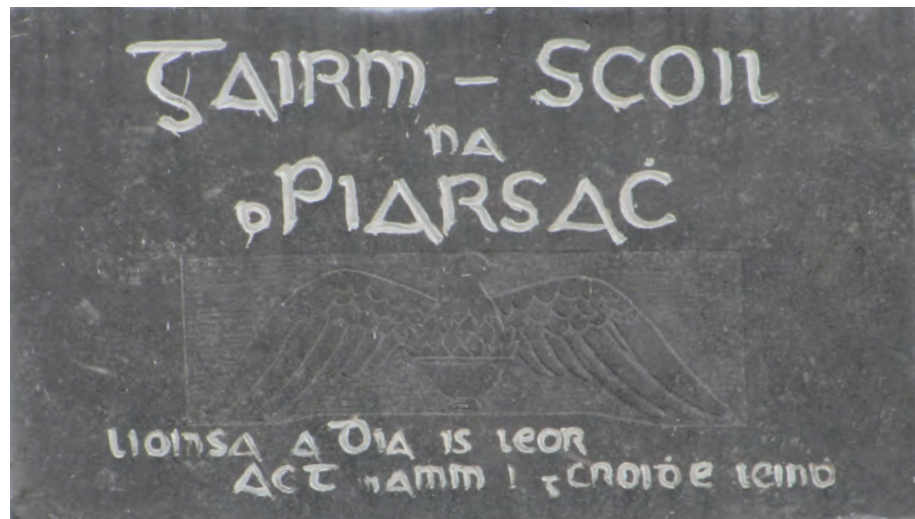 GAIRM – SCOIL
na
bPIARSAĊ
LIOMSA A ḊIA IS LEOR
AĊT M'AINM I gCROIḊE LEINḂ